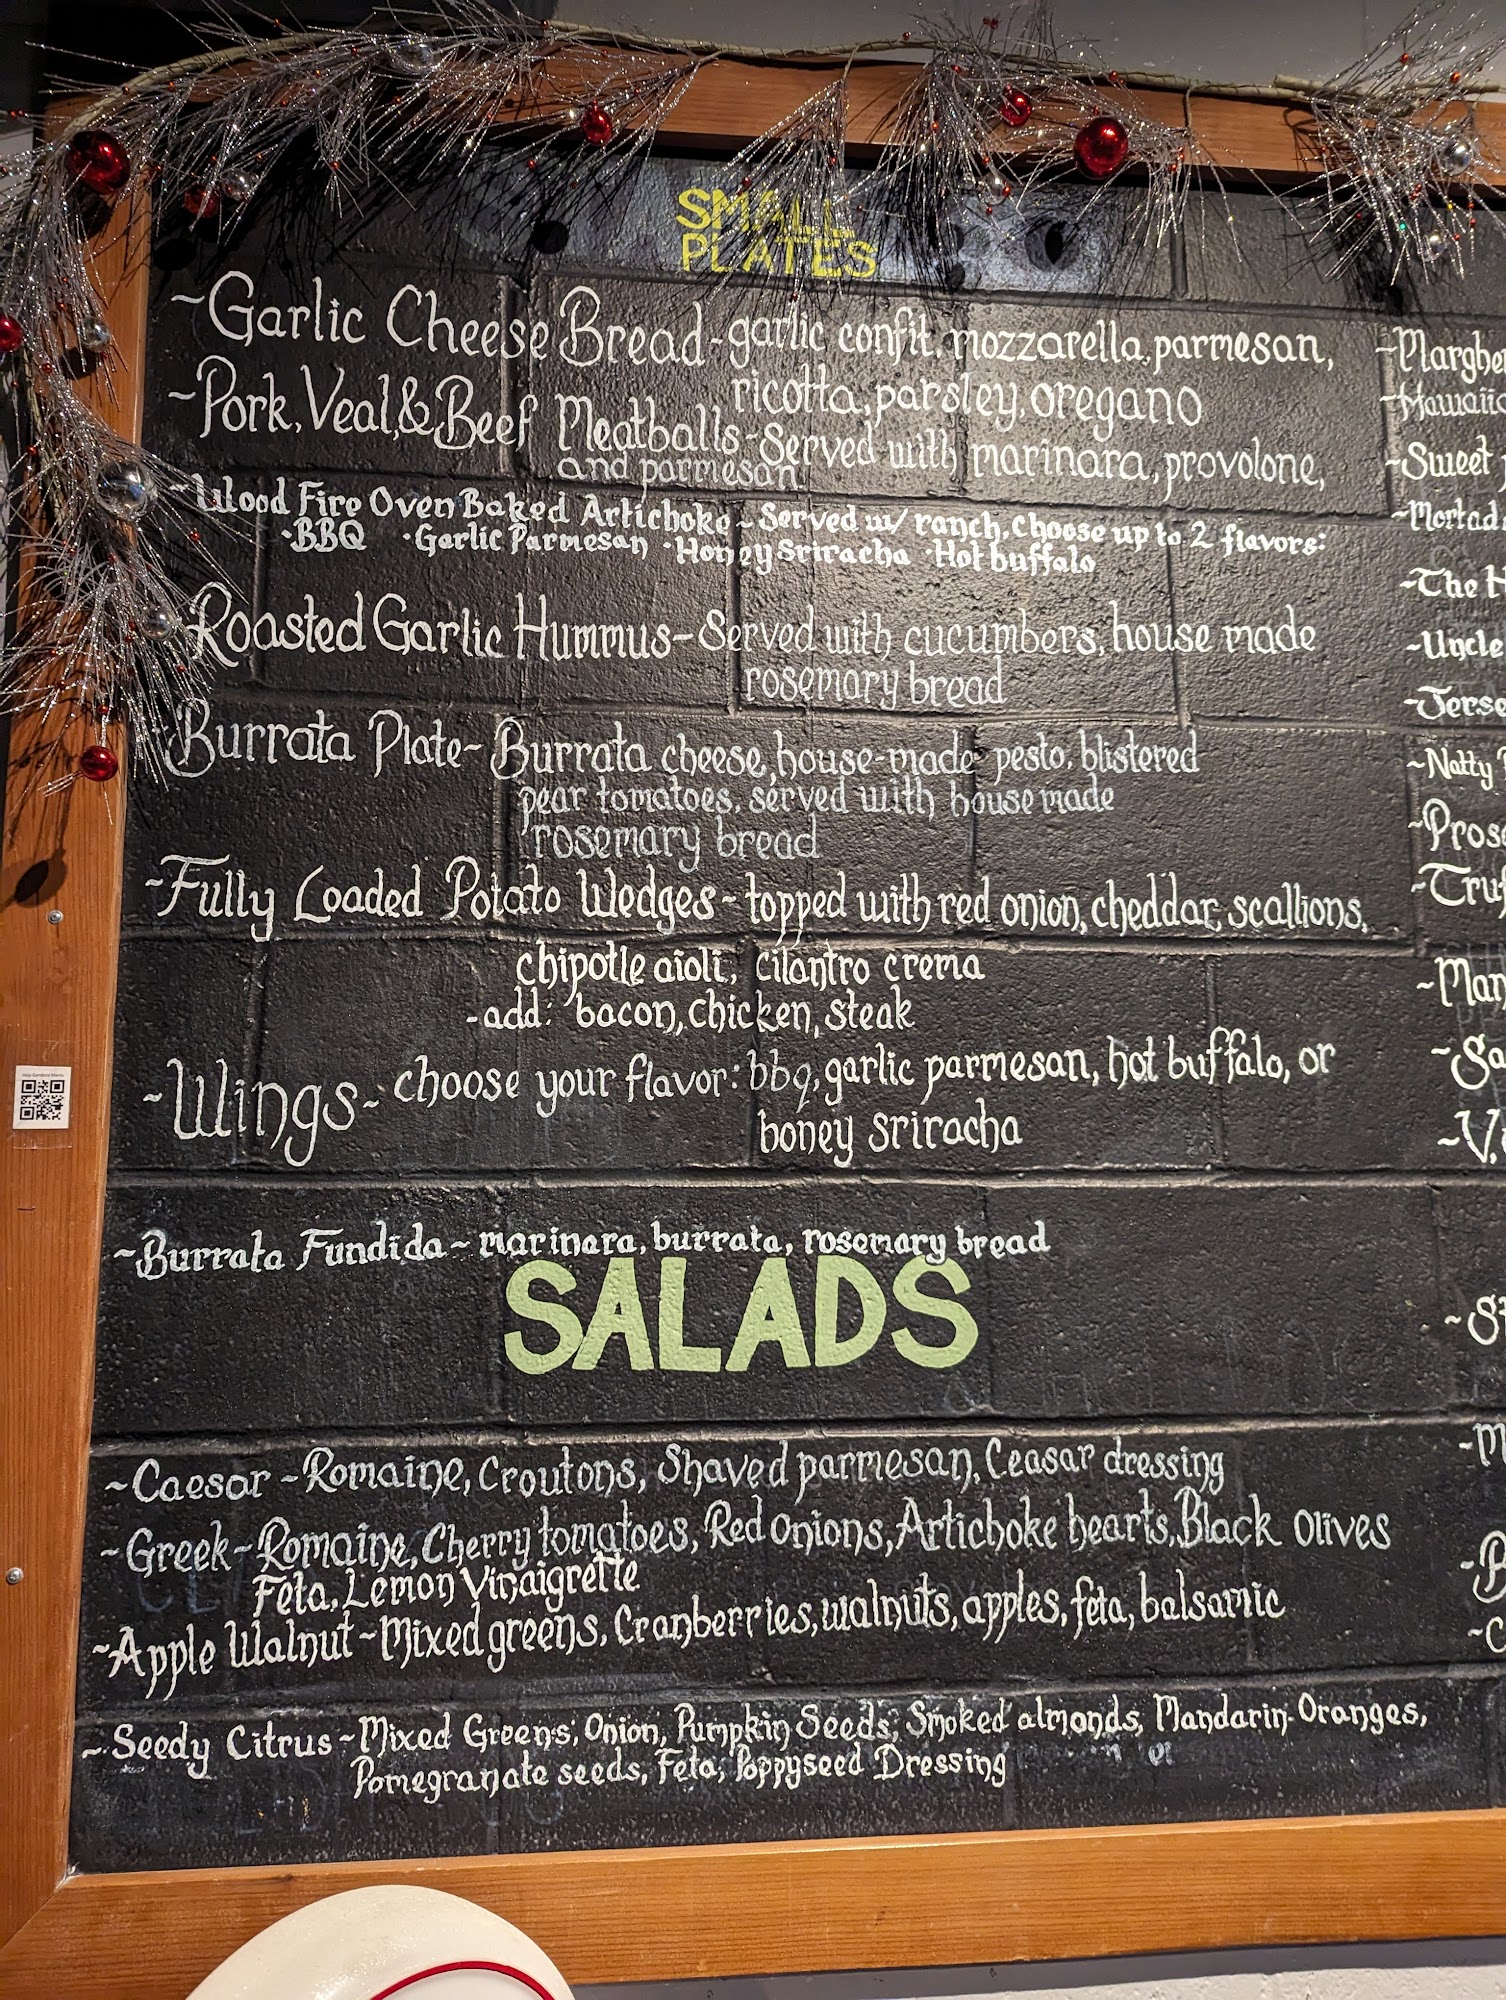 SMALL
PLATES
~Garlic Cheese Bread - garlic confit, mozzarella, parmesan,
ricotta, parsley, oregano
~Pork, Veal, & Beef Meatballs - Served with marinara, provolone,
and parmesan
~Wood Fire Oven Baked Artichoke ~ Served w/ ranch, Choose up to 2 flavors:
·BBQ ·Garlic Parmesan ·Honey Sriracha ·Hot buffalo
Roasted Garlic Hummus - Served with cucumbers, house made
rosemary bread
~Burrata Plate - Burrata cheese, house-made pesto, blistered
pear tomatoes, served with house made
rosemary bread
~Fully Loaded Potato Wedges ~ topped with red onion, cheddar, scallions,
chipotle aioli, cilantro crema
-add: bacon, chicken, steak
~Wings~ choose your flavor: bbq, garlic parmesan, hot buffalo, or
honey sriracha
~Burrata Fundida ~ marinara, burrata, rosemary bread
SALADS
~Caesar - Romaine, Croutons, Shaved parmesan, Ceasar dressing
~Greek ~ Romaine, Cherry tomatoes, Red Onions, Artichoke hearts, Black Olives
Feta, Lemon Vinaigrette
~Apple Walnut ~ Mixed greens, Cranberries, walnuts, apples, feta, balsamic
~Seedy Citrus ~ Mixed Greens, Onion, Pumpkin Seeds, Smoked almonds, Mandarin Oranges,
Pomegranate seeds, Feta, Poppyseed Dressing
~Sweet
~The
~Uncle
~Natty